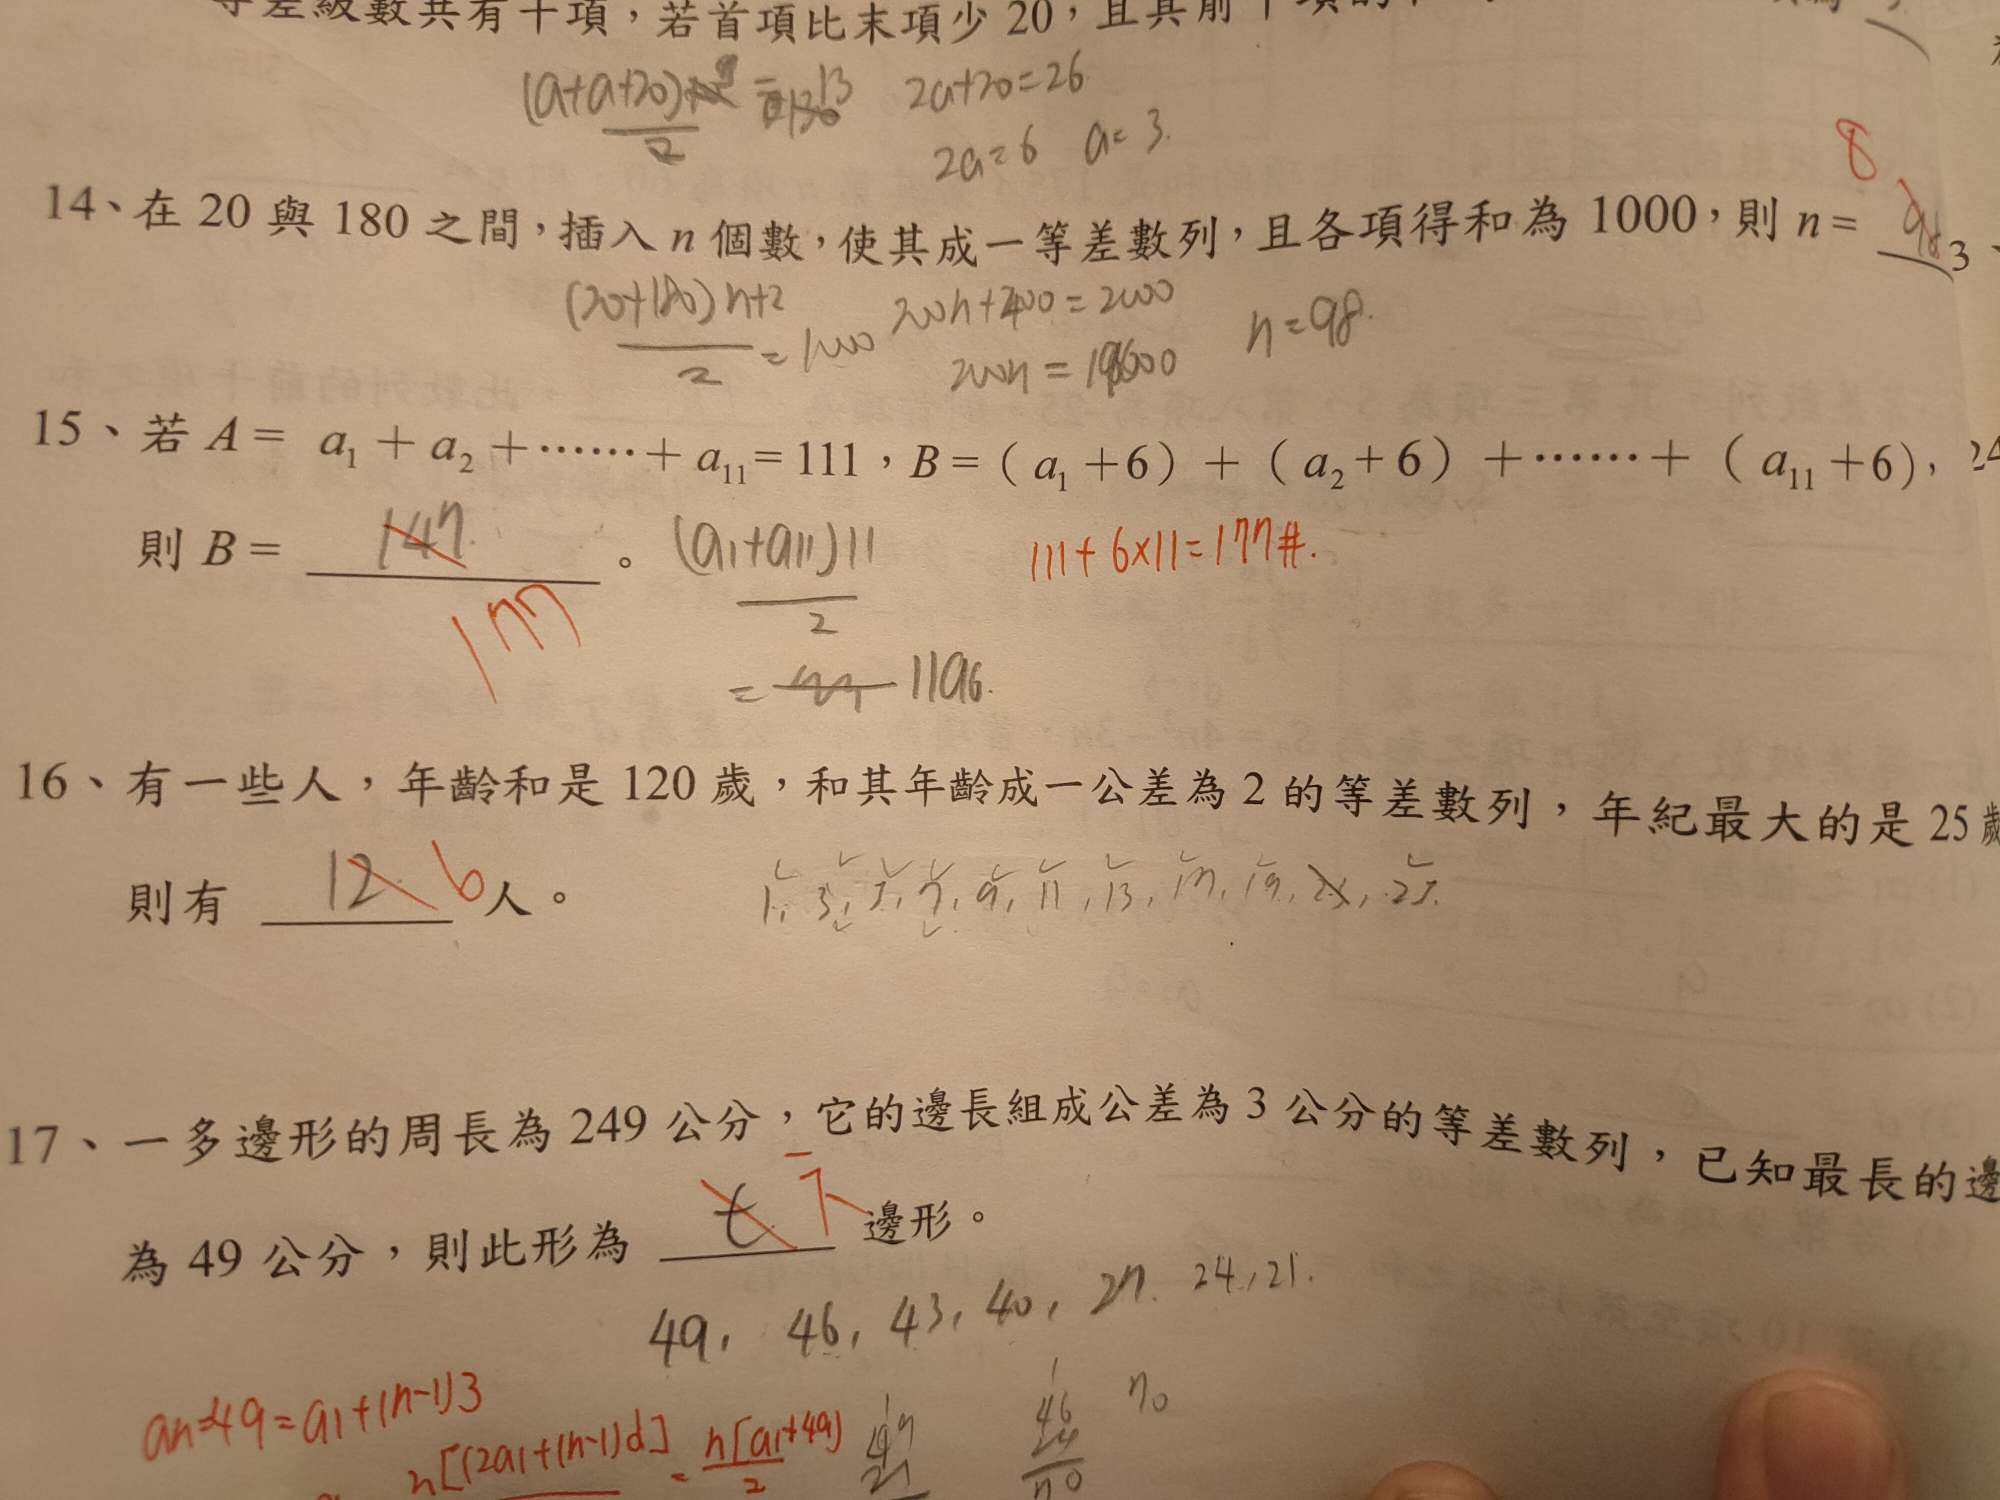 等差級數共有十項，若首項比末項少 20，且其前
(a+a+20) = 13 2a+20=26
2
2a=6 a=3.
8
14、在 20 與 180 之間，插入 n 個數，使其成一等差數列，且各項得和為 1000，則 n= 98
3、
(20+180) n+2 = 1000 200n+400=2000 n=98.
2
200n = 19600
15、若 A= a₁ + a₂ +⋯⋯+ a₁₁ = 111，B=( a₁ +6) + ( a₂ +6) +⋯⋯+ ( a₁₁ +6)，
則 B= 147 。 (a1+a11)11 111+6×11=177#.
177
2
= 11a6.
16、有一些人，年齡和是 120 歲，和其年齡成一公差為 2 的等差數列，年紀最大的是 25 歲
則有 12 6 人。 1, 3, 5, 7, 9, 11, 13, 17, 19, 25.
17、一多邊形的周長為 249 公分，它的邊長組成公差為 3 公分的等差數列，已知最長的邊
為 49 公分，則此形為 七 六 邊形。
49, 46, 43, 40, 27. 24, 21.
an=49=a1+(n-1)3
n[(2a1+(n-1)d] = n[a1+49]
2
49
21
1
46
24
70
70